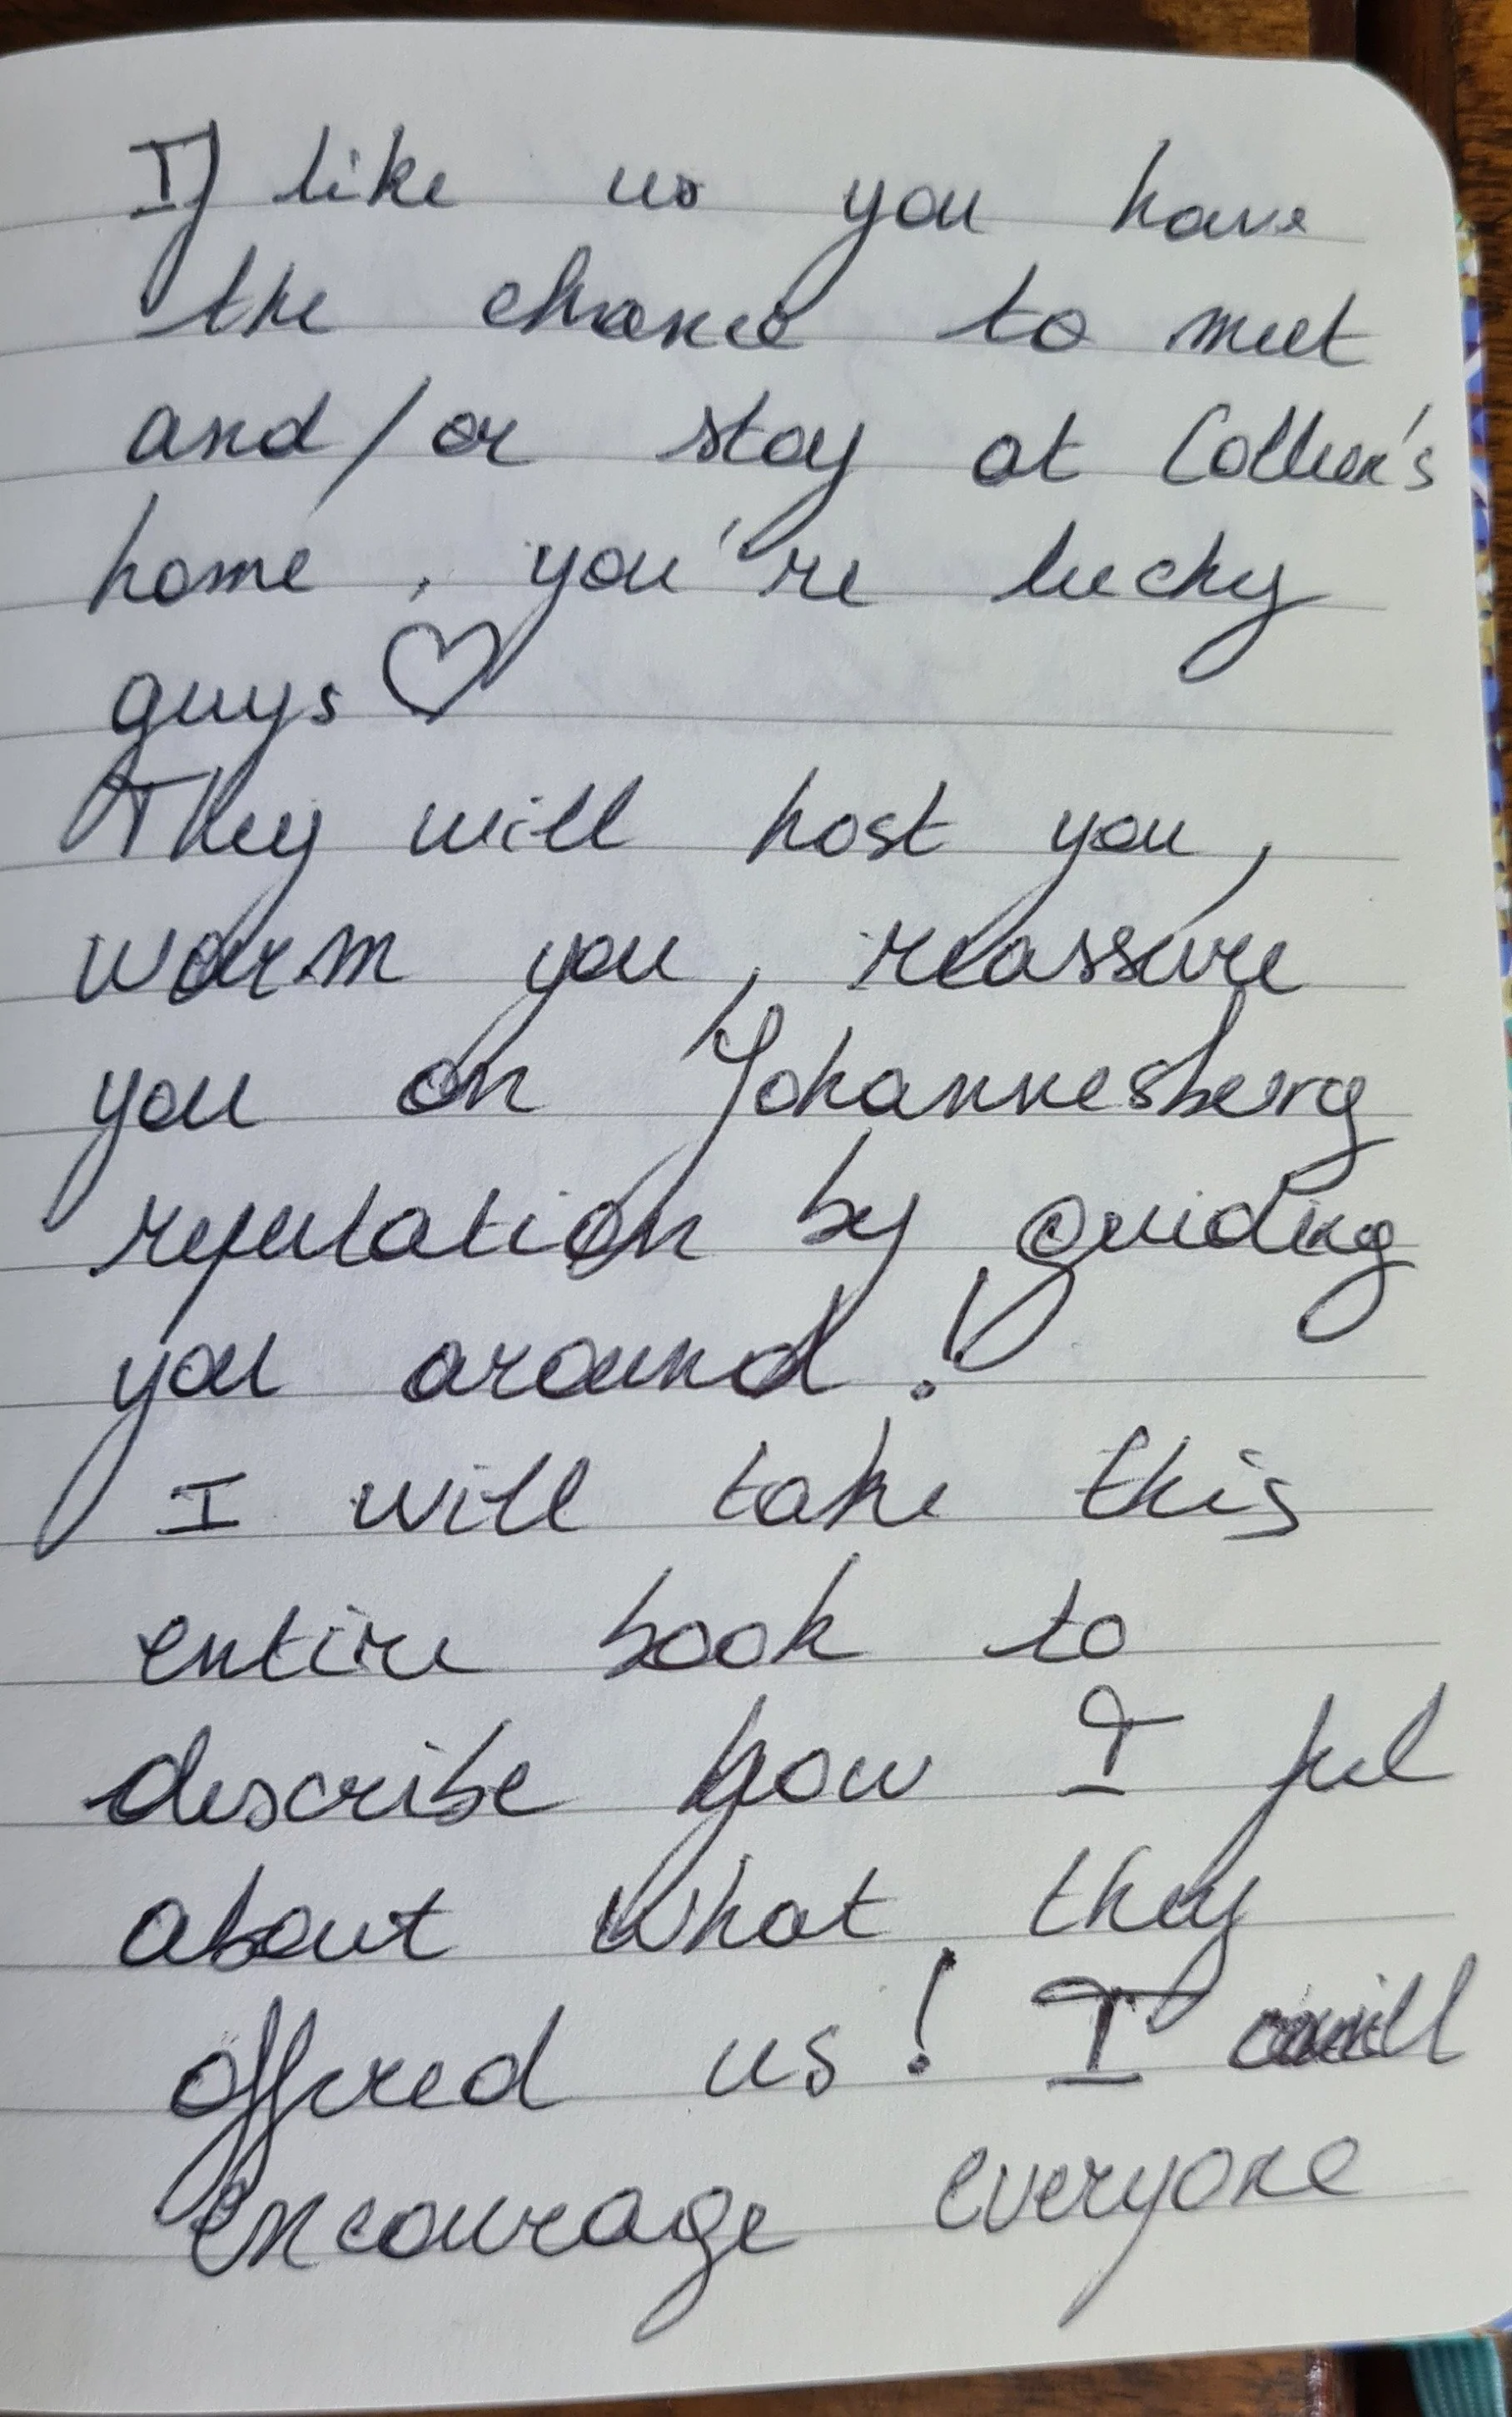 If like us you have
the chance to meet
and/or stay at
home, you're lucky
guys ♡
They will host you,
warm you, reassure
you on Johannesberg
reputation by guiding
you around!
I will take this
entire book to
describe how I feel
about what they
offered us! I will
encourage everyone